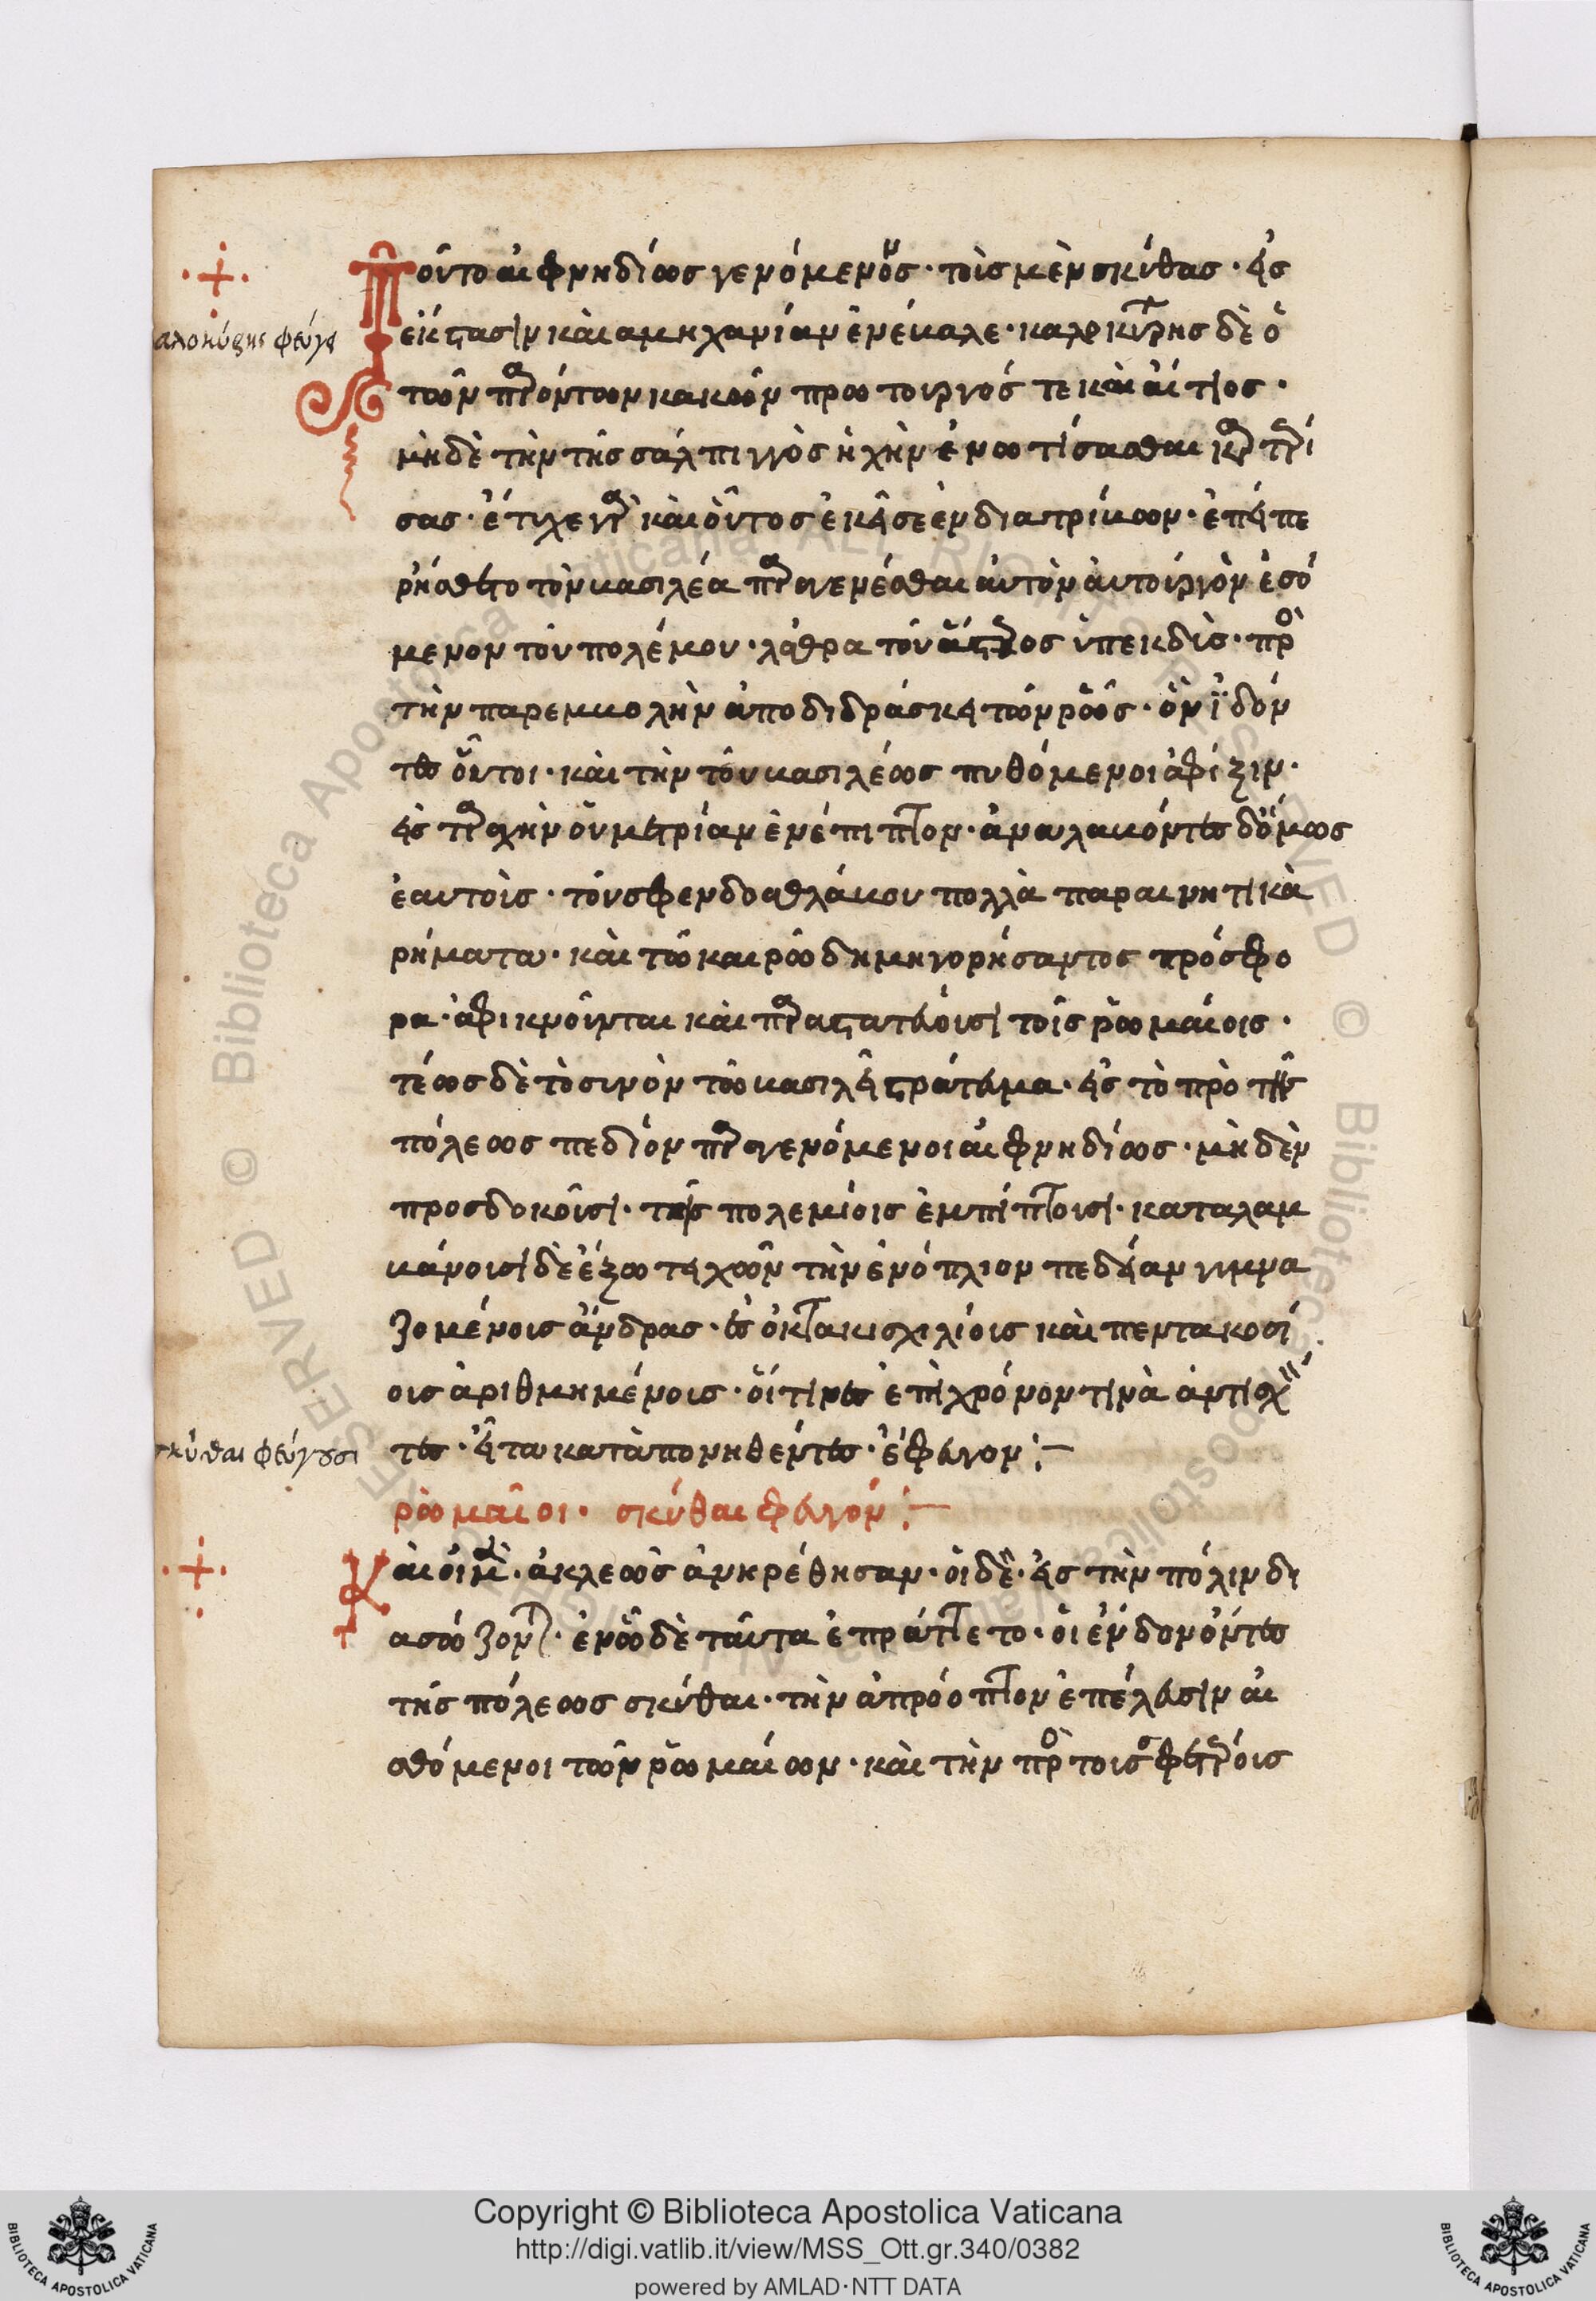 Τοῦτο αἰφνηδίως γενόμενον· τοὺς μὲν σκύθας· εἰς
ἔκστασιν καὶ ἀμηχανίαν ἐνέβαλε· καλοκύρης δὲ ὁ
καλοκύρης φεύγει
τῶν παρόντων κακῶν πρωτουργός τε καὶ αἴτιος·
μηδὲ τὴν τῆς σάλπιγγος ἠχὴν ἐνωτίσασθαι καρτερή
σας· ἔτυχε γὰρ καὶ οὗτος ἐκεῖσε ἐνδιατρίβων· ἐπεὶ πε
ρήσθετο τὸν βασιλέα παραγενέσθαι αὐτὸν αὐτουργὸν ἐσό
μενον τοῦ πολέμου· λάθρα τοῦ ἄστεος ὑπεκδὺς· πρὸς
τὴν παρεμβολὴν ἀποδιδράσκει τῶν ρῶς· ὃν ἰδόν
τες οὗτοι· καὶ τὴν τοῦ βασιλέως πυθόμενοι ἄφιξιν·
εἰς ταραχὴν οὐ μετρίαν ἐνέπιπτον· ἀναλαβόντες δ' ὅμως
ἑαυτοὺς· τοῦ σφενδοσθλάβου πολλὰ παραινητικὰ
ρήματα· καὶ τῶ καιρῶ δημηγορήσαντος πρόσφο
ρα· ἀφικνοῦνται καὶ παραστατεύουσι τοῖς ρωμαίοις·
τέως δὲ τὸ συνὸν τῶ βασιλεῖ στράτευμα· εἰς τὸ πρὸ τῆς
πόλεως πεδίον παραγενόμενοι αἰφνηδίως· μηδὲν
προσδοκῶσι· τοῖς πολεμίοις ἐμπίπτουσι· καταλαμ
βάνουσι δὲ ἔξω τειχῶν τὴν ἐνόπλιον πεδείαν γυμνα
ζομένους ἄνδρας· εἰς ὀκτακισχιλίους καὶ πεντακοσί
ους ἀριθμημένους· οἵτινες ἐπὶ χρόνον τινὰ ἀντισχόν
τες· εἶτα καταπονηθέντες· ἔφευγον:–
σκύθαι φεύγουσι
ρωμαῖοι· σκύθαι ἔφευγον:–
Καὶ οἱ μὲν· ἀκλεῶς ἀνηρέθησαν· οἱ δὲ· εἰς τὴν πόλιν δι
ασώζοντο· ἐν ὧ δὲ ταῦτα ἐπράττετο· οἱ ἔνδον ὄντες
τῆς πόλεως σκύθαι· τὴν ἀπρόοπτον ἐπέλευσιν αἰ
σθόμενοι τῶν ρωμαίων· καὶ τὴν πρὸς τοὺς σφετέρους
Copyright © Biblioteca Apostolica Vaticana
http://digi.vatlib.it/view/MSS_Ott.gr.340/0382
powered by AMLAD·NTT DATA